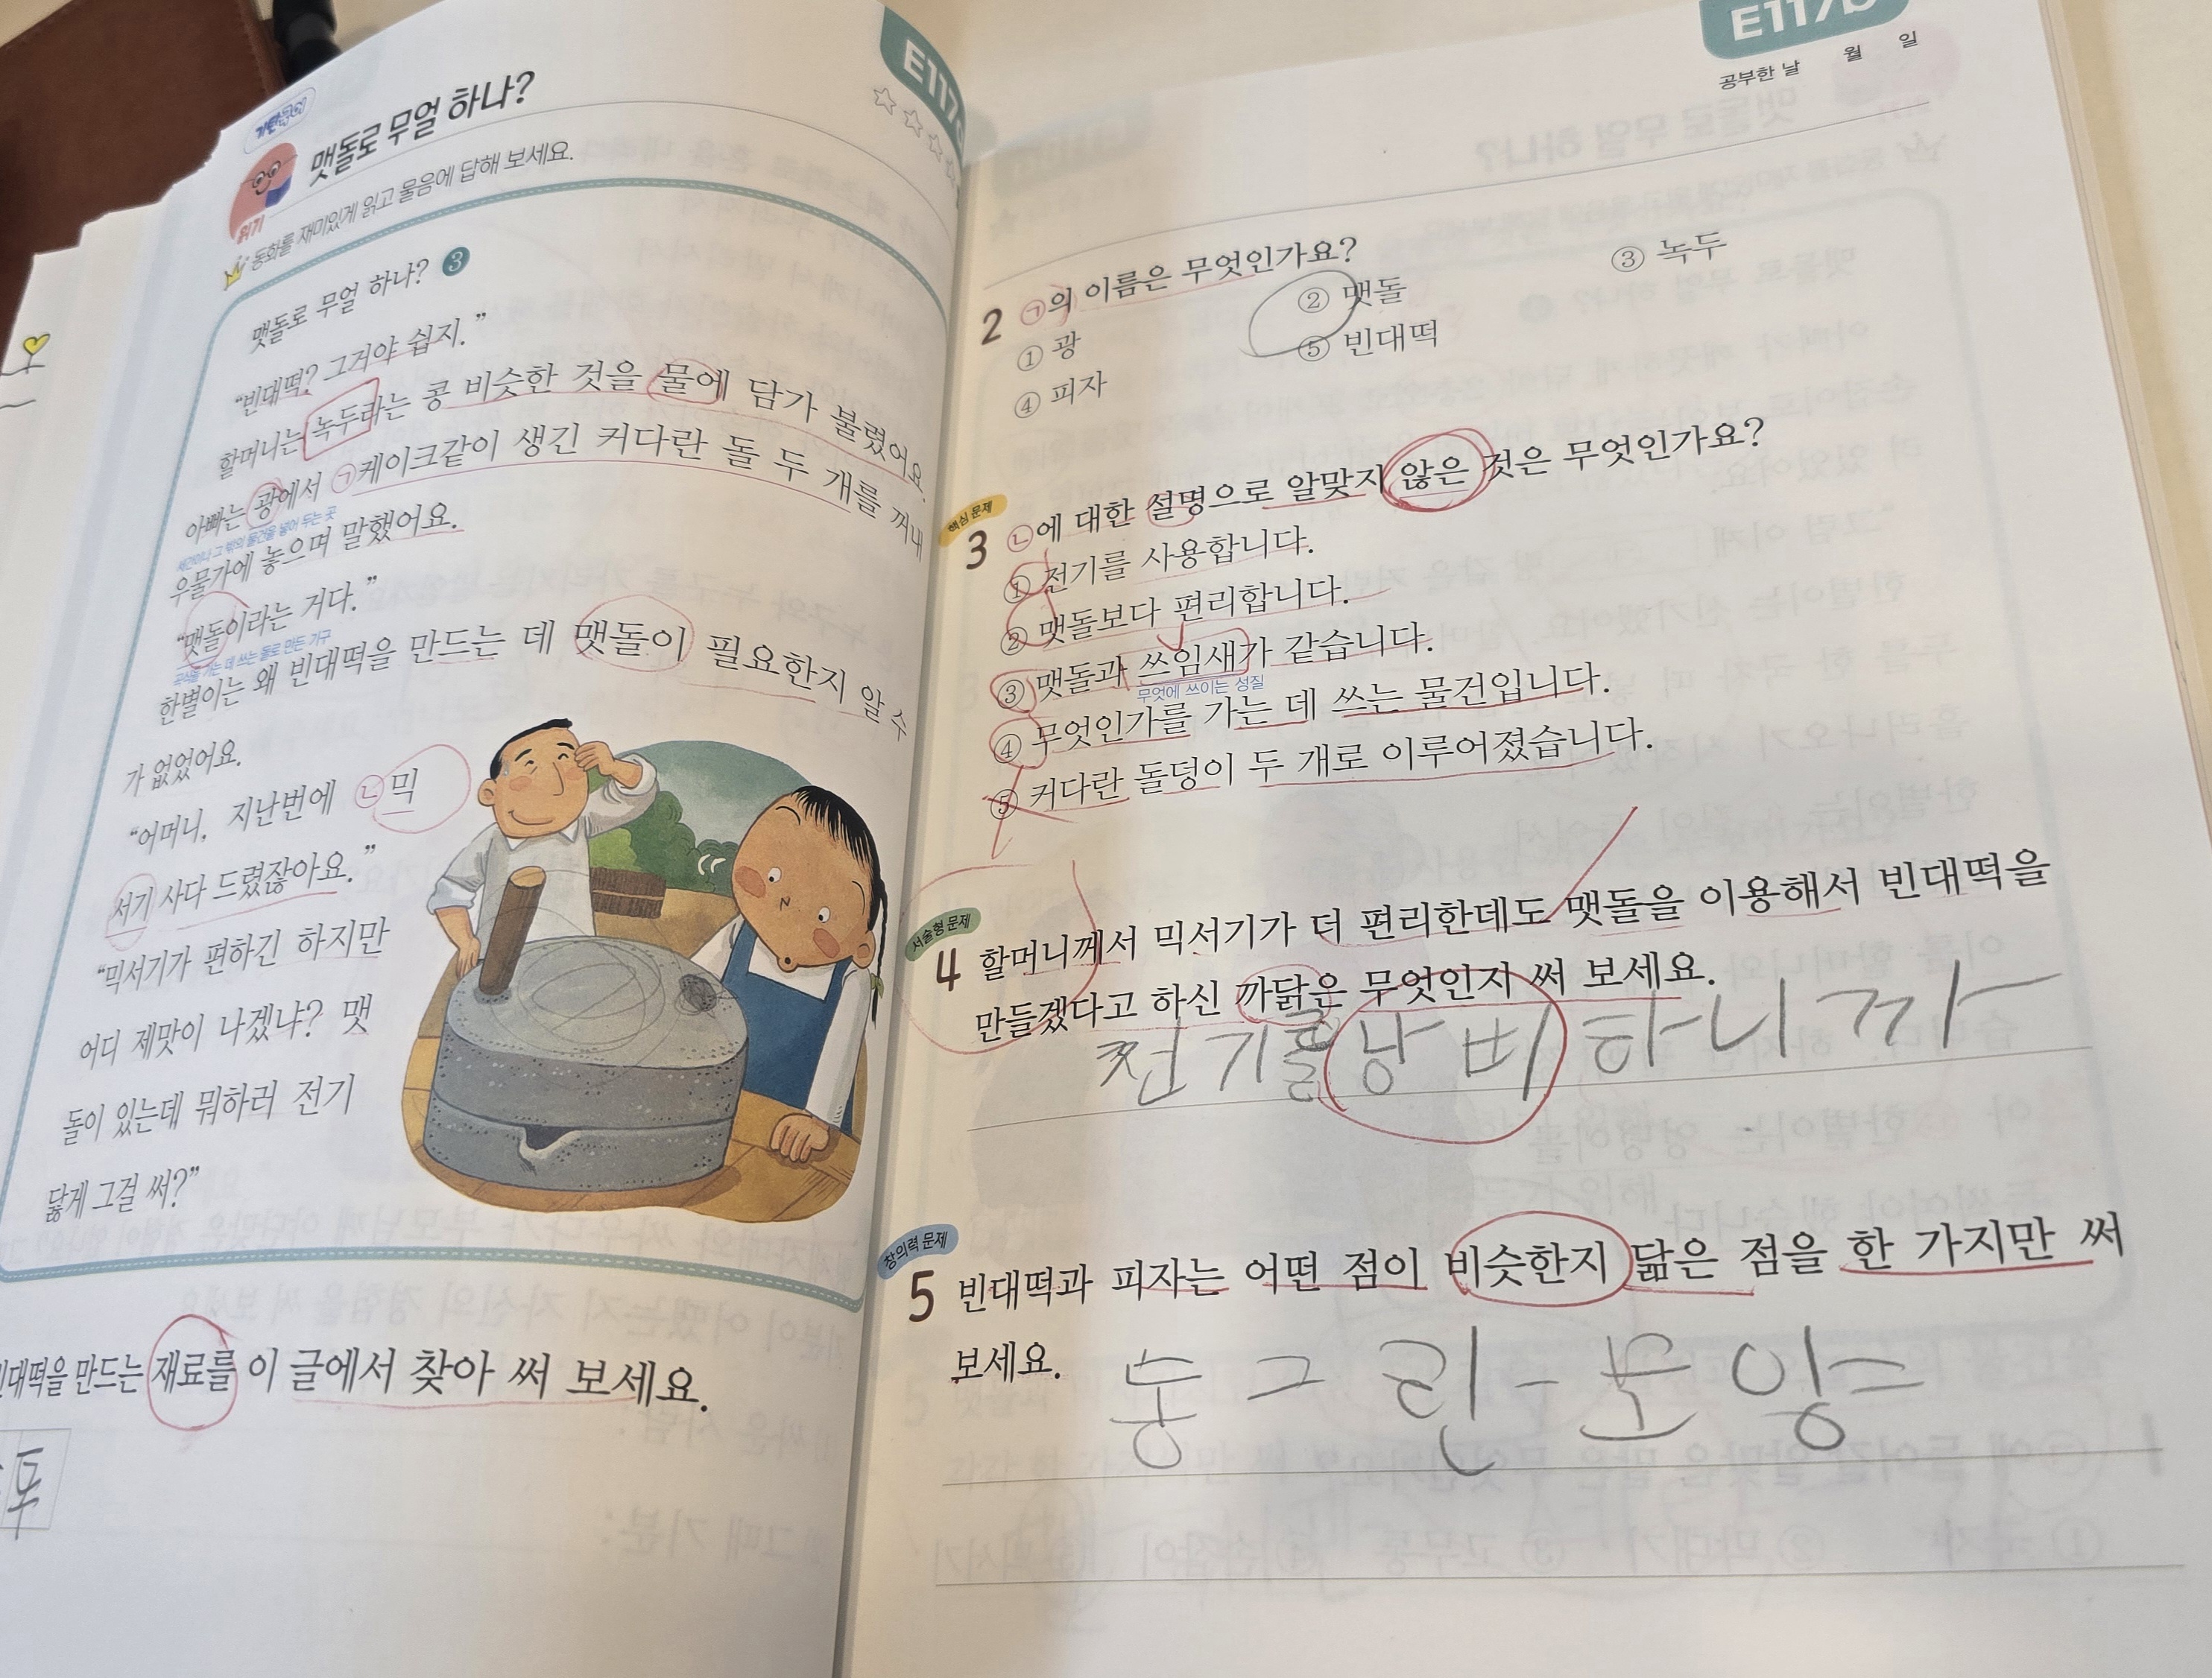 기탄국어
맷돌로 무얼 하나?
읽기
동화를 재미있게 읽고 물음에 답해 보세요.
맷돌로 무얼 하나? 3
“빈대떡? 그거야 쉽지.”
할머니는 녹두라는 콩 비슷한 것을 물에 담가 불렸어요.
아빠는 광에서 ㉠케이크같이 생긴 커다란 돌 두 개를 꺼내
세간이나 그 밖의 물건을 넣어 두는 곳
우물가에 놓으며 말했어요.
“맷돌이라는 거다.”
곡식을 가는 데 쓰는 돌로 만든 기구
한별이는 왜 빈대떡을 만드는 데 맷돌이 필요한지 알 수
가 없었어요.
“어머니, 지난번에 ㉡믹
서기 사다 드렸잖아요.”
“믹서기가 편하긴 하지만
어디 제맛이 나겠냐? 맷
돌이 있는데 뭐하러 전기
닳게 그걸 써?”
빈대떡을 만드는 재료를 이 글에서 찾아 써 보세요.
E117b
공부한 날 월 일
2 ㉠의 이름은 무엇인가요?
① 광 ② 맷돌 ③ 녹두
④ 피자 ⑤ 빈대떡
핵심 문제
3 ㉡에 대한 설명으로 알맞지 않은 것은 무엇인가요?
① 전기를 사용합니다.
② 맷돌보다 편리합니다.
③ 맷돌과 쓰임새가 같습니다.
무엇에 쓰이는 성질
④ 무엇인가를 가는 데 쓰는 물건입니다.
⑤ 커다란 돌덩이 두 개로 이루어졌습니다.
서술형 문제
4 할머니께서 믹서기가 더 편리한데도 맷돌을 이용해서 빈대떡을
만들겠다고 하신 까닭은 무엇인지 써 보세요.
전기를낭비하니까
창의력 문제
5 빈대떡과 피자는 어떤 점이 비슷한지 닮은 점을 한 가지만 써
보세요.
둥그린모양